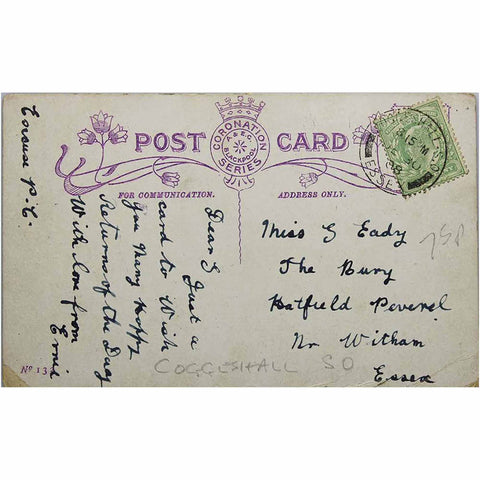 POST CARD
CORONATION SERIES
A. & E.C.
BLACKPOOL
FOR COMMUNICATION.
ADDRESS ONLY.
Excuse P.C.
Dear G Just a
card to Wish
you Many Happy
Returns of the Day
With love from
Ernie
Miss G Eady
The Bury
Hatfield Peverel
Nr Witham
Essex
75P
COGGESHALL SO
No 13
ESSEX